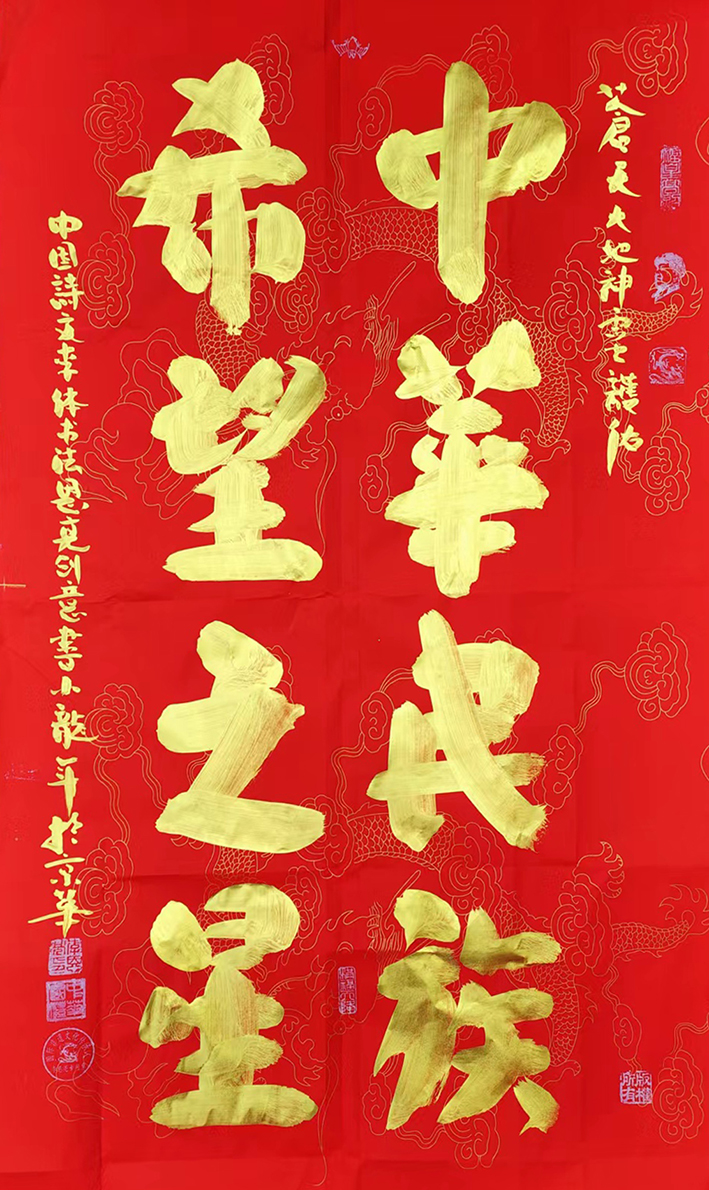 蒼天大地神靈護佑
中華民族
希望之星
中国詩文李体书法创意書小龍年於京華
版權所有